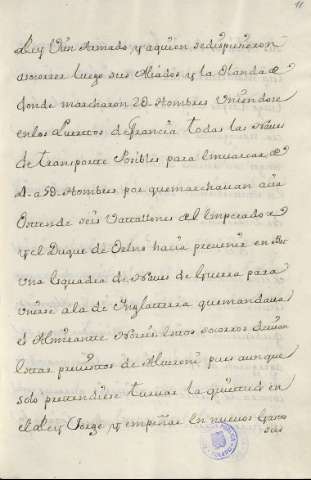 11
Rey Vien Armado y aquien se dispusieron
asocorrer luego sus Aliados y la Olanda de
donde marcharon 2@ Hombres Uniendose
en los Puertos de Francia todas las Naves
de transporte Posibles para embarcar de
4. a 5@ Hombres por que marchavan acia
Ostende seis Vattallones del Emperador
y el Duque de Orlns hacia prevenir en
una Esquadra de Naves de Guerra para
Unirse a la de Inglatterra que mandava
el Almirante Norris. Estos socorros
los proiectos de Alveroni pues aunque
solo pretendiere turvar la quietud en
el Rey Jorge y empeñar En nuevos Gastos
sus